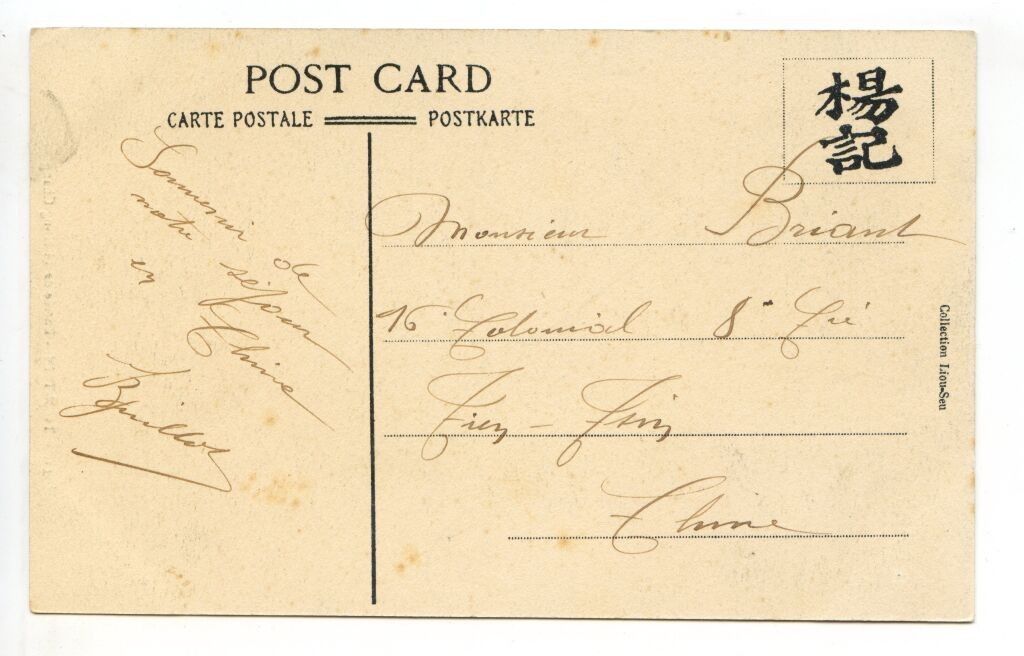 POST CARD
CARTE POSTALE POSTKARTE
楊
記
Souvenir de
notre séjour
en Chine
Monsieur Briant
16e Colonial 8e Cie
Tien-Tsin
Chine
Collection Liou-Seu